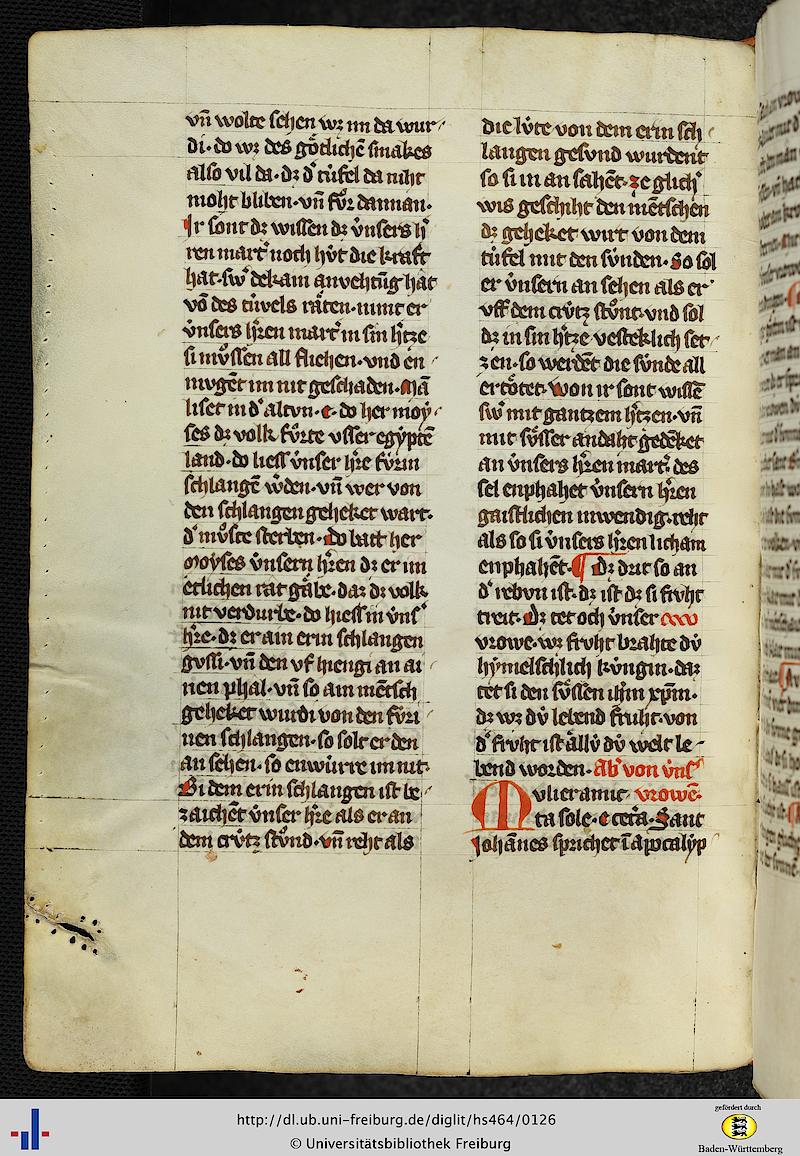 vn̄ wolte sehen wz im da wur⸗
di · do wz des götlichē smakes
also vil da · dz dˀ tu̍fel da niht
moht bliben · vn̄ fůr dannan ·
Ir sont dz wissen dz v̍nsers hˀ
ren martˀ noch hv̍t die kraft
hat · swˀ dekain anvehtūg hat
vō des tu̍vels räten · nimt er
v̍nsers hˀren martˀ in sin hˀtze
si mv̊ssen all fliehen · vnd en⸗
mvgēt im nit geschaden · Mā
liset in dˀ altvn · e · do her moẏ⸗
ses dz volk fůrte vsser egẏptē
land · do liess v̍nser hˀre fv̍rin
schlangē wˀden · vn̄ wer von
den schlangen geheket wart ·
dˀ mv̊ste sterben · Do batt her
moyses v̍nsern hˀren dz er im
etlichen rat gäbe · daz dz volk
nit verdurbe · do hiess in v̍nsˀ
hˀre · dz er ain erin schlangen
gvssi · vn̄ den vf hiengi an ai⸗
nen phal · vn̄ so ain mētsch
geheket wurdi von den fv̍ri⸗
nen schlangen · so solt er den
an sehen · so enwürre im nit ·
Bi dem erin schlangen ist be⸗
zaichēt v̍nser hˀre als er an
dem crv̍tz stv̊nd · vn̄ reht als
die lv̍te von dem erin sch⸗
langen gesvnd wurdent
so si in an sahēt · ze glichˀ
wis geschiht den mētschen
dz geheket wirt von dem
tu̍fel mit den sv̍nden · So sol
er v̍nsern an sehen als er
vff dem crv̍tz stv̊nt · vnd sol
dz in sin hˀtze vesteklich set⸗
zen · so werdēt die sv̍nde all
ertötet · Won ir sont wissē
swˀ mit gantzem hˀtzen · vn̄
mit sv̊sser andaht gedēket
an v̍nsers hˀren martˀ · des
sel enphahet v̍nsern hˀren
gaistlichen inwendig · reht
als so si v̍nsers hˀren licham
enphahēt · ¶ Dz drit so an
dˀ rebvn ist · dz ist dz si frvht
treit · Dz tet och v̍nser
vrowe · wz frvht brahte dv̍
hẏmelschlich kv̍ngin · daz
tet si den sv̊ssen ihm xpm̄ ·
dz wz dv̍ lebend frvht · von
dˀ frvht ist ällv̍ dv̍ welt le⸗
bend worden · Abˀ von v̍nsˀ
Mvlier amic⸗ vrowē ·
ta sole · e cetˀa · Sant
Johānes sprichet ī apocalẏp
http://dl.ub.uni-freiburg.de/diglit/hs464/0126
© Universitätsbibliothek Freiburg
gefördert durch
Baden-Württemberg